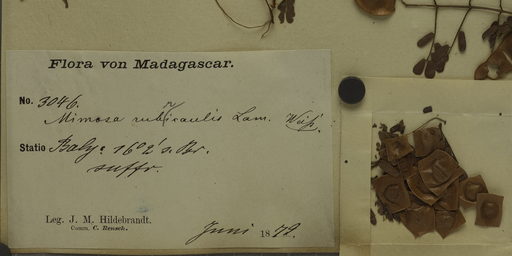 Flora von Madagascar.
No. 3046.
Mimosa rubicaulis Lam. Weiß.
Statio Baly: 16°2' s. Br.
suffr.
Leg. J. M. Hildebrandt.
Comm. C. Rensch.
Juni 1879.